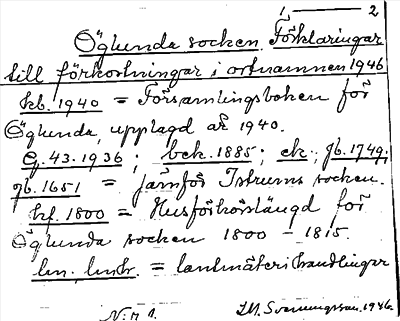 1 —— 2
Öglunda socken. Förklaringar
till förkortningar i ortnamnen 1946
kb. 1940 = Församlingsboken för
Öglunda, upplagd år 1940.
E. 43. 1936; bek. 1885; ek.; jb. 1749;
jb. 1651 = jämför Istrums socken.
hf. 1800 = Husförhörslängd för
Öglunda socken 1800 - 1815.
lm. lmhr. = lantmäterihandlingar
N:r 1. I.M. Svenningsson. 1946.